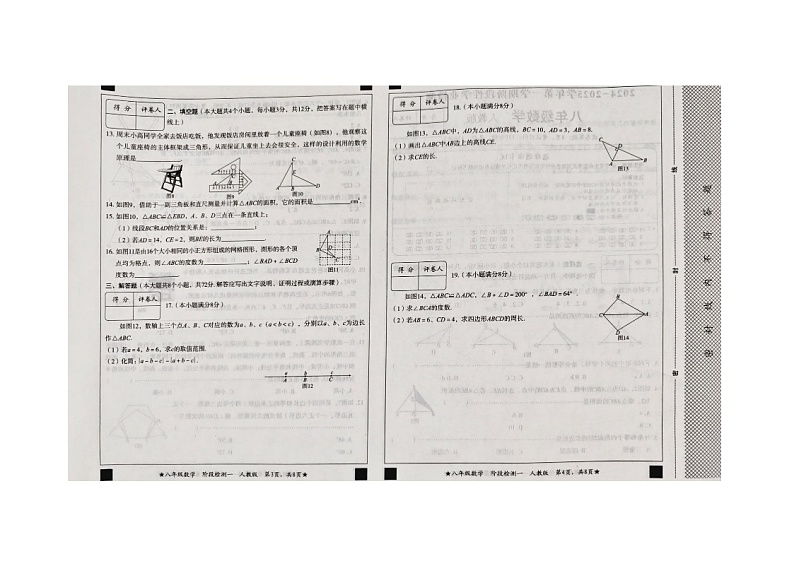 得 分 评卷人
二、填空题（本大题共4个小题，每小题3分，共12分，把答案写在题中横
线上）
13. 周末小高同学全家去饭店吃饭，他发现饭店房间里放着一个儿童座椅（如图8），他观察这
个儿童座椅的主体框架成三角形，从而保证儿童坐上去会很安全，这样的设计利用的数学
原理是
图8
图9
A
B
C
D
E
图10
14. 如图9，借助于一副三角板和直尺测量并计算△ABC的面积，它的面积是 cm².
15. 如图10，△ABC≌△EBD，A、B、D三点在一条直线上：
（1）线段BC和AD的位置关系是 ；
（2）若AD＝14，CE＝2，则BE的长为 .
16. 如图11是由16个大小相同的小正方形组成的网格图形，图形的各个顶
点均为格点，则∠ABC的度数为 ；∠BAD＋∠BCD
度数为
图11
三、解答题（本大题共8个小题，共72分.解答应写出文字说明，证明过程或演算步骤）
得 分 评卷人
17.（本小题满分8分）
如图12，数轴上三个点A、B、C对应的数为a、b、c（a＜b＜c），分别以a、b、c为边长
作△ABC.
（1）若a＝4，b＝6，求c的取值范围.
（2）化简：|a－b－c|－|a＋b－c|.
a b c
A B C
图12
★八年级数学 阶段检测一 人教版 第3页，共8页★
得 分 评卷人
18.（本小题满分8分）
如图13，△ABC中，AD为△ABC的高线，BC＝10，AD＝3，AB＝8.
（1）画出△ABC中AB边上的高线CE.
（2）求CE的长.
C
D
A
B
图13
得 分 评卷人
19.（本小题满分8分）
如图14，△ABC≌△ADC，∠B＋∠D＝200°，∠BAD＝64°.
（1）求∠BCA的度数.
（2）若AB＝6，CD＝4，求四边形ABCD的周长.
B
A
C
D
图14
★八年级数学 阶段检测一 人教版 第4页，共8页★
线
封
密
密 封 线 内 不 得 答 题